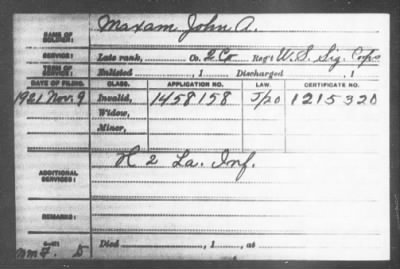 NAME OF SOLDIER: Maxam John A.
SERVICE: Late rank, Co. 2 Co Reg't U.S. Sig. Corps
TERM OF SERVICE: Enlisted , 1 Discharged , 1
DATE OF FILING. CLASS. APPLICATION NO. LAW. CERTIFICATE NO.
1921 Nov. 9 Invalid, 1458158 J/20 1215320
Widow,
Minor,
ADDITIONAL SERVICES: H 2 La. Inf.
REMARKS:
Died , 1 , at